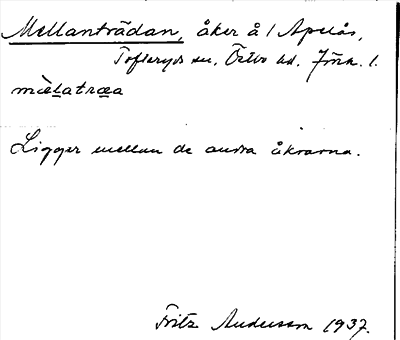 Mellanträdan, åker å 1 Apelås,
Tofteryds sn, Östbo hd. Jönk. l.
Ligger mellan de andra åkrarna.
Fritz Anderson 1937.